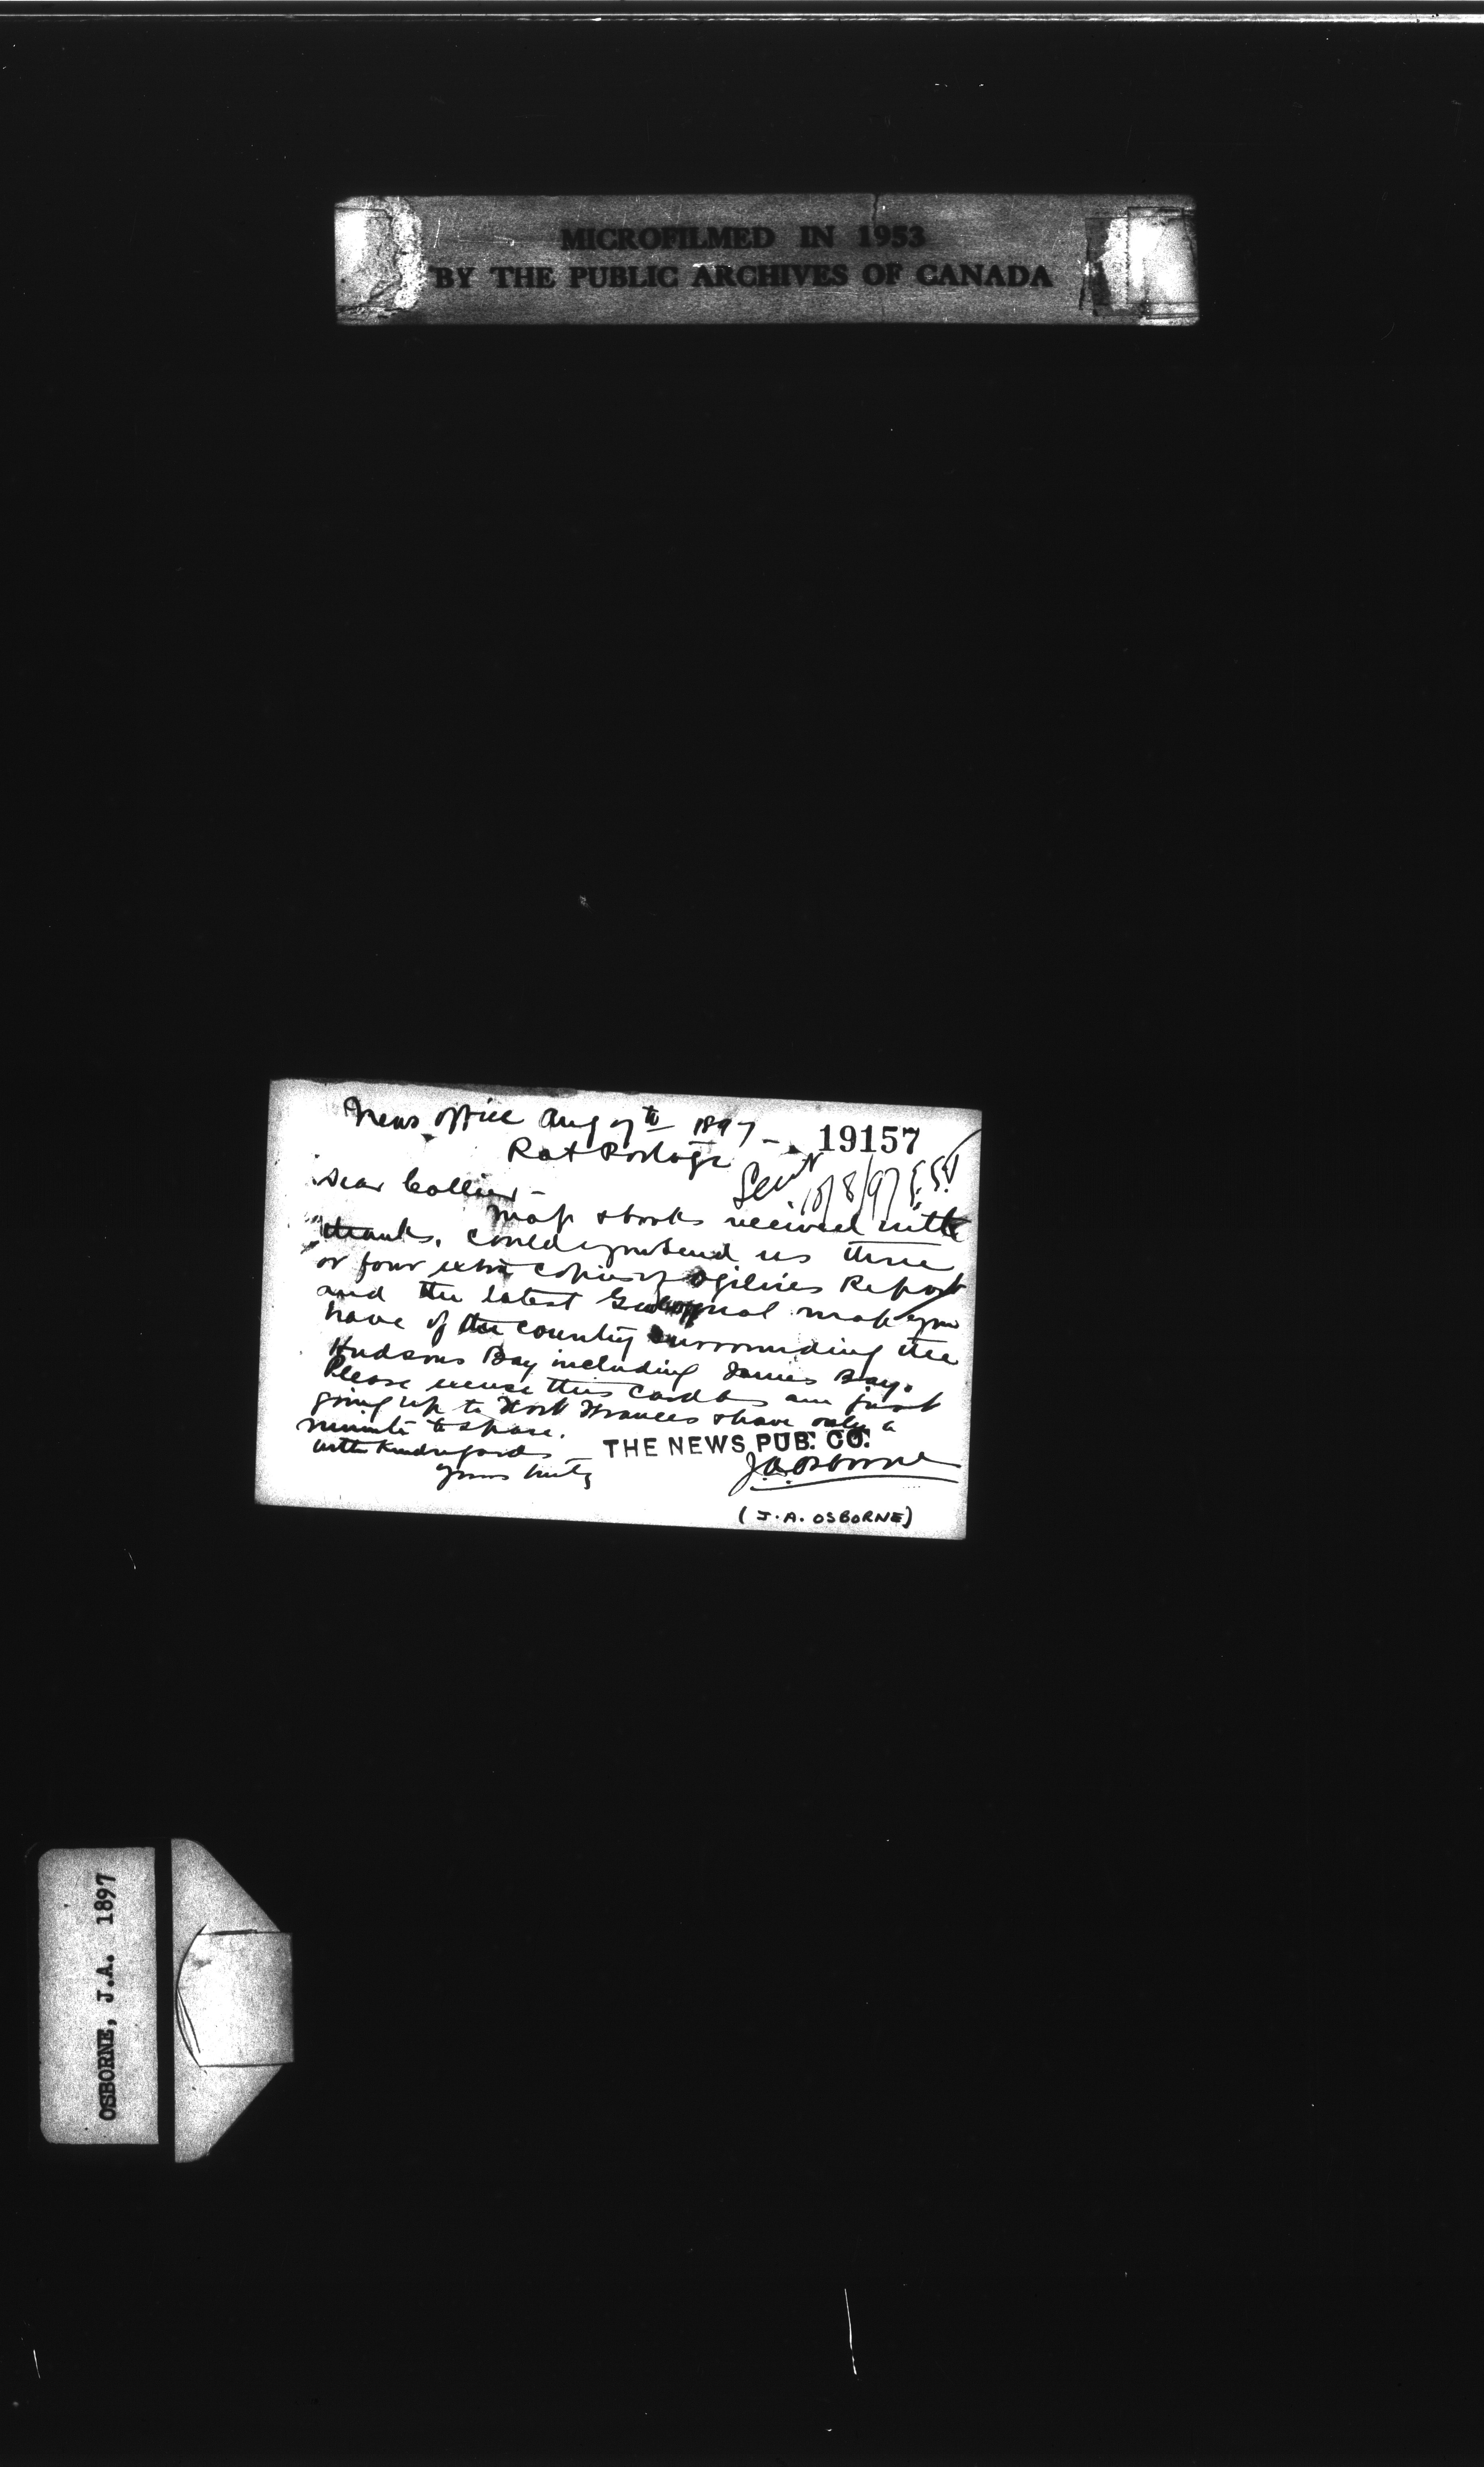 MICROFILMED IN 1953
BY THE PUBLIC ARCHIVES OF CANADA
News office Aug 7th 1897 -
19157
Rat Portage
Sent 10/8/97
Dear Collier -
Map & books received with
thanks. Could you send us three
or four extra copies of Ogilvies Report
and the latest Geological map you
have of the country surrounding the
Hudsons Bay including James Bay.
Please excuse this card as am just
going up to Fort Frances & have only a
minute to spare.
With kind regards
Yours truly
THE NEWS PUB. CO.
J.A. Osborne
(J.A. OSBORNE)
OSBORNE, J.A. 1897